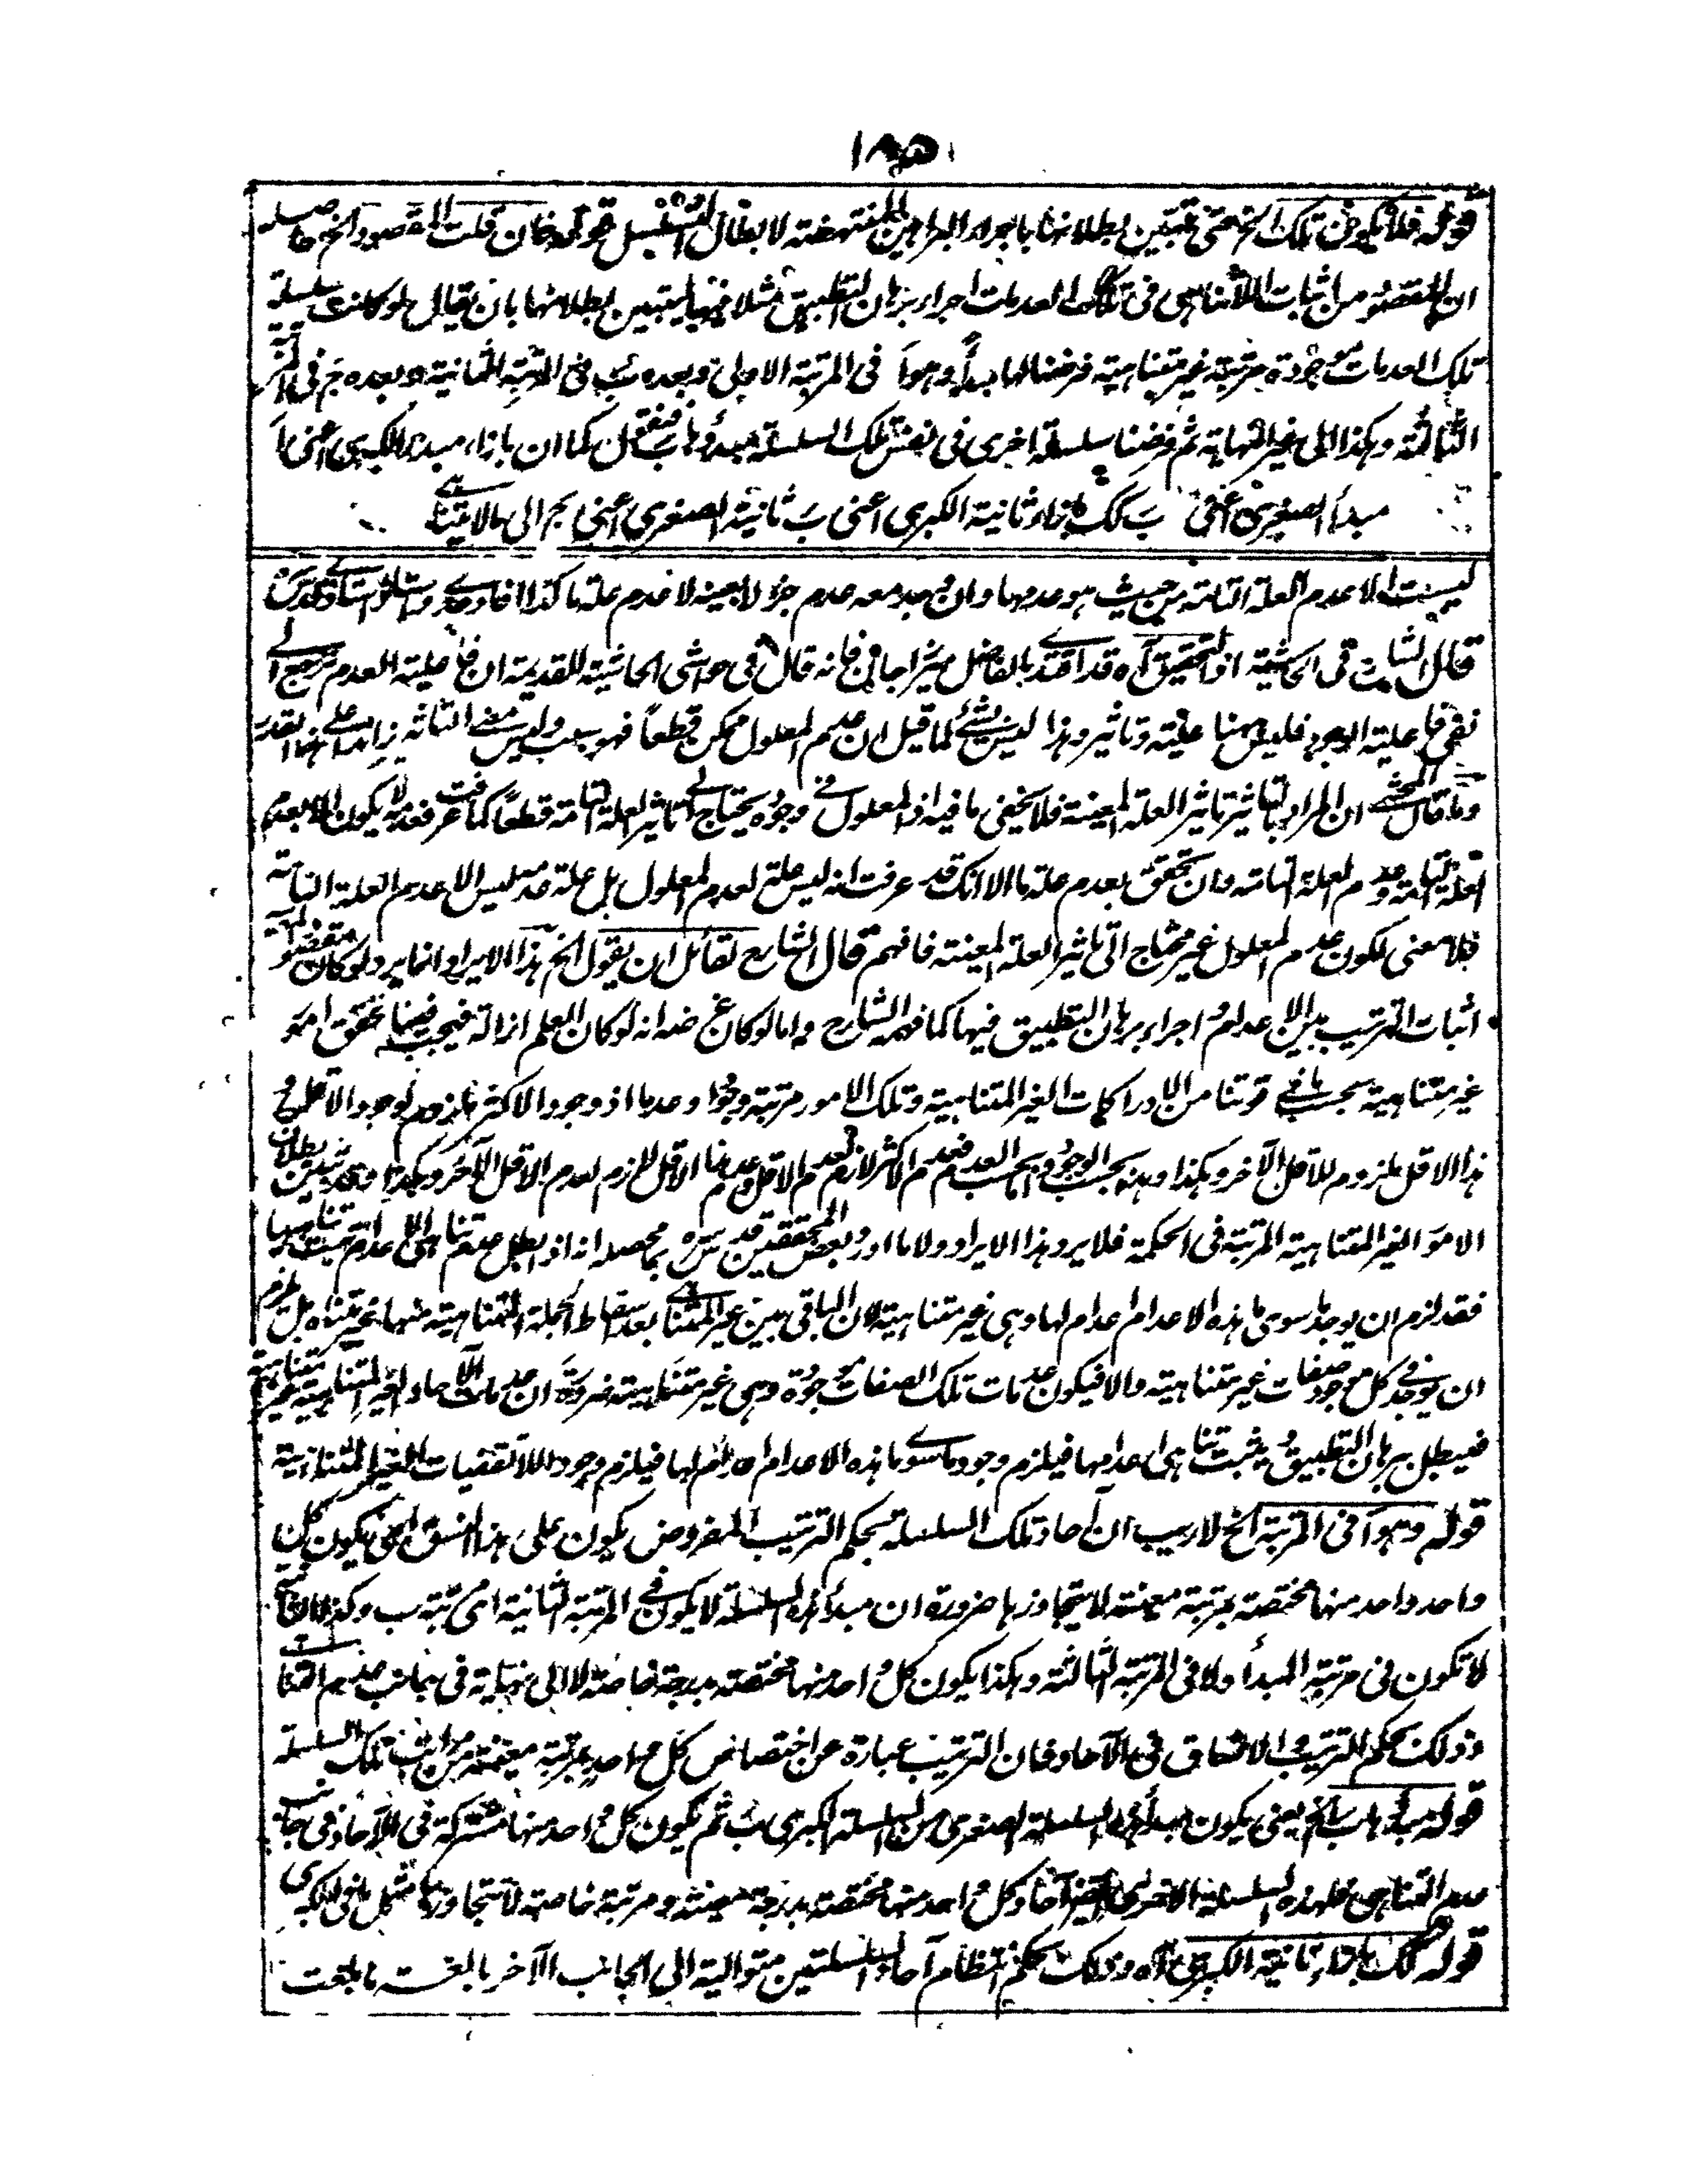 قوله فلا يكون تلك الخ حتى يتبين بطلانها باجراء البراهين المنتهضة لابطال التسلسل قوله فان قلت المقصود الخ حاصله
ان المقصود من اثبات اللاتناهى فى تلك العدمات اجراء برهان التطبيق مثلا فيها ليتبين بطلانها بان يقال لو كانت سلسلة
تلك العدمات موجودة مرتبة غير متناهية فرضنا لها مبدأ وهو آ فى المرتبة الاولى وبعده ب فى المرتبة الثانية وبعده ج فى المرتبة
الثالثة وهكذا الى غير النهاية ثم فرضنا سلسلة اخرى فى نفس تلك السلسلة مبدؤها ب فنقول كما ان بازاء مبدء الكبرى اعنى آ
مبدأ الصغرى اعنى ب كك بازاء ثانية الكبرى اعنى ب ثانية الصغرى اعنى ج الى مالا يتناهى
ليست الا عدم العلة التامة من حيث هو عدمها وان وجد معه عدم جزء لا بعينه لا عدم علة ما كذا افاد
قال الشارح فى الحاشية اذ التحقيق آه قد اقتدى بالفاضل ميرزا جان فانه قال فى حواشى الحاشية القديمة ان فاعلية العدم ترجع الى
نفى فاعلية الوجود فليس ههنا علية وتاثير وهذا ليس بشئ لما قيل ان عدم المعلول ممكن قطعاً فهو بسبب وليس معنى التاثير زايدا على هذا القدر
وما قال المحشى ان المراد بالتاثير تاثير العلة المعينة فلا يخفى ما فيه اذ المعلول فى وجوده يحتاج الى تاثير العلة التامة قطعاً كما عرفت فعدمه لا يكون الا بعدم
العلة التامة وعدم العلة التامة وان تحقق بعدم علة ما الا انك قد عرفت انه ليس علة لعدم المعلول بل علة عدمه ليس الا عدم العلة التامة
فلا معنى لكون عدم المعلول غير محتاج الى تاثير العلة المعينة فافهم قال الشارح لقائل ان يقول الخ هذا الايراد انما يرد لو كان مقصوده
اثبات الترتيب بين الاعدام واجراء برهان التطبيق فيها كما فهمه الشارح واما لو كان غرضه انه لو كان العلم ازالة فيجب فينا تحقق امور
غير متناهية بحسب ما فى قوتنا من الادراكات الغير المتناهية وتلك الامور مرتبة وجودا وعدما اذ وجود الاكثر ملزوم لوجود الاقل و
هذا الاقل ملزوم للاقل الآخر وهكذا وهذه بحسب الوجود واما بحسب العدم فعدم الاكثر لازم لعدم الاقل وعدم هذا الاقل لازم لعدم الاقل الآخر وهكذا وقد تبين بطلان
الامور الغير المتناهية المرتبة فى الحكمة فلا يرد هذا الايراد ولا ما اورد بعض المحققين قدس سره بما محصله انه اذا بطل عدم تناهى الاعدام ثبت تناهيها
فقد لزم ان يوجد ما سوى هذه الاعدام اعدام لها وهى غير متناهية لان الباقى من غير المتناهى بعد اسقاط الجملة المتناهية منها غير متناه بل لزم
ان يوجد فى كل موجود صفات غير متناهية والا فيكون عدمات تلك الصفات موجودة وهى غير متناهية ضرورة ان عدمات الآحاد الغير المتناهية غير متناهية
فيبطل ببرهان التطبيق ويثبت تناهى اعدامها فيلزم وجود ما سوى هذه الاعدام اعدام لها فيلزم وجود اللاتقفيات الغير المتناهية
قوله وهو آ فى المرتبة الخ لا ريب ان آحاد تلك السلسلة بحكم الترتيب المفروض يكون على هذا النسق اعنى يكون كل
واحد واحد منها مختصة بمرتبة معينة لا يتجاوزها ضرورة ان مبدأ هذه السلسلة لا يكون فى المرتبة الثانية اى مرتبة ب وكذا الثانية
لا تكون فى مرتبة المبدأ ولا فى المرتبة الثالثة وهكذا يكون كل واحد منها مختصة بدرجة خاصة لا الى نهاية فى جانب عدم التناهى
وذلك بحكم الترتيب والاتساق فى الآحاد فان الترتيب عبارة عن اختصاص كل واحد بمرتبة معينة من مراتب تلك السلسلة
قوله مبدؤها ب الخ يعنى يكون مبدأ هذه السلسلة الصغرى من السلسلة الكبرى ب ثم يكون كل واحد منها مشتركة فى الآحاد فى جانب
عدم التناهى فلهذه السلسلة الاخرى ايضا آحاد كل واحد منها مختصة بدرجة معينة ومرتبة خاصة لا تتجاوزها مثل ما فى الكبرى
قوله كك بازاء ثانية الكبرى آه وذلك بحكم انتظام آحاد السلسلتين متوالية الى الجانب الآخر بالغة ما بلغت